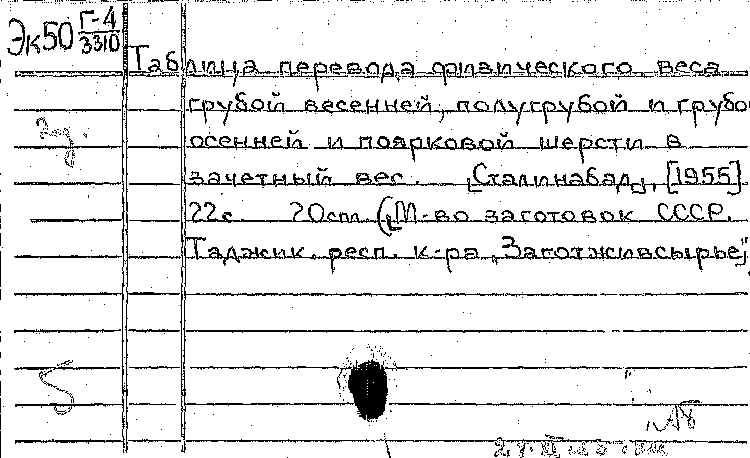 Эк50 Г-4
3310
Таблица перевода физического веса
грубой весенней, полугрубой и грубо
осенней и поярковой шерсти в
зачетный вес. [Сталинабад], [1955]
22с. 20см. (М-во заготовок СССР.
Таджик. респ. к-ра "Заготживсырье"